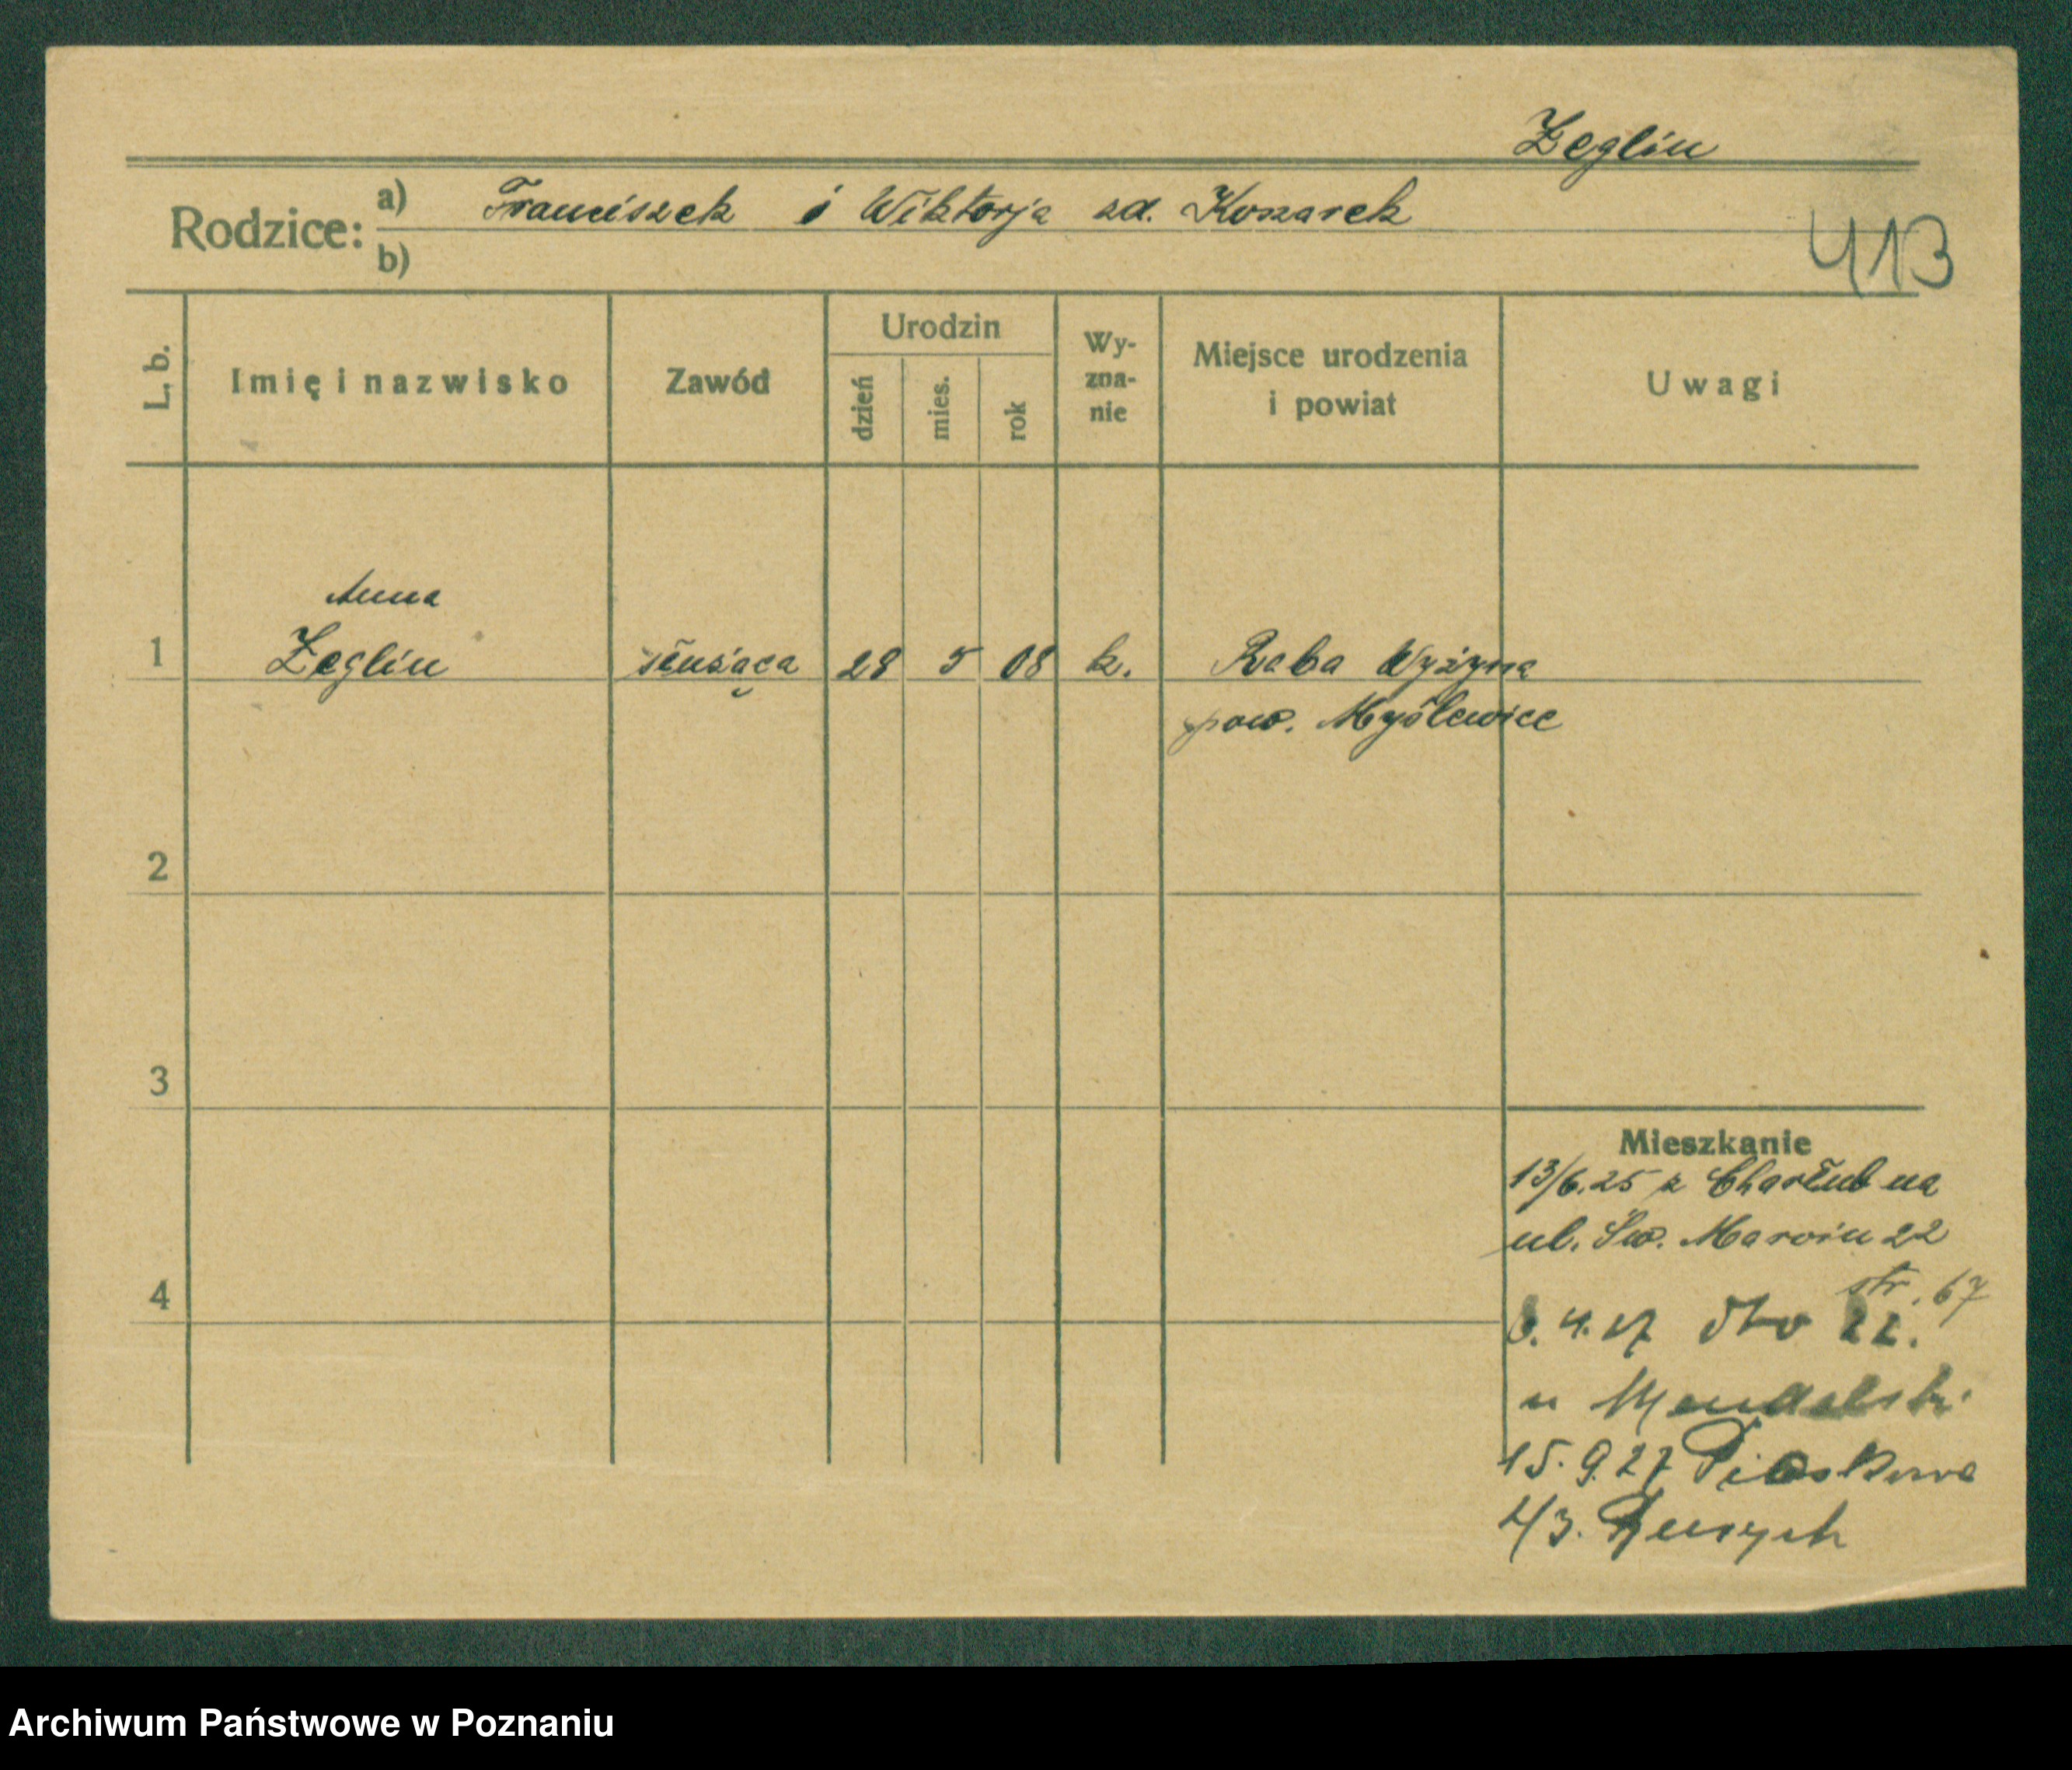 Żeglin
Rodzice: a) Franciszek i Wiktorja zd. Konarek
b)
413
L. b. Imię i nazwisko Zawód Urodzin dzień mies. rok Wy-zna-nie Miejsce urodzenia i powiat Uwagi
Anna
1 Żeglin służąca 28 5 08 k. Raba Wyżyna
pow. Myślewice
2
3
Mieszkanie
13/6.25 z Charłub na
ul. Św. Marcin 22
4
str. 67
4.27 dto 22.
u
15.9.27 Piaskowa
4/3.
Archiwum Państwowe w Poznaniu